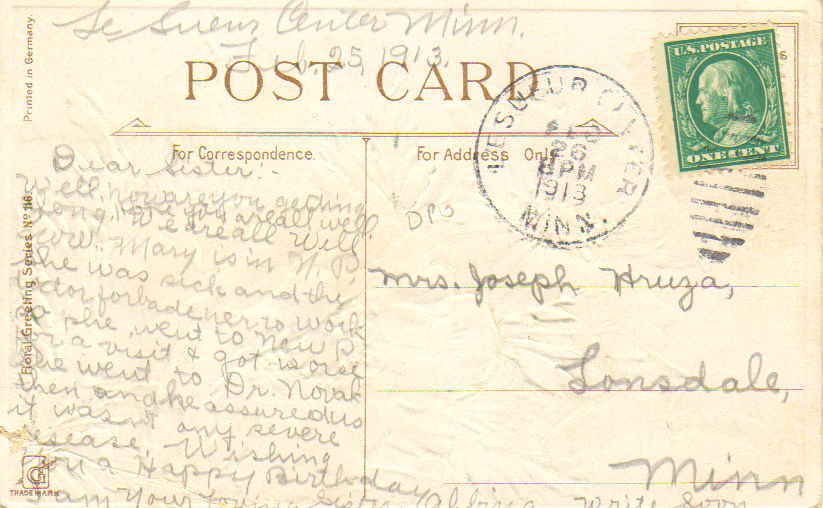 Le Sueur Center Minn.
Feb. 25, 1913.
POST CARD
Printed in Germany.
For Correspondence.
For Address Only
LE SUEUR CENTER
FEB
26
PM
1913
MINN.
U.S. POSTAGE
ONE CENT
6
Dear Sister:-
Well, how are you getting
along. Hope you are all well
We are all well
now. Mary is in N. P.
she was sick and the
doctor forbade her to work
so she went to New P
for a visit & got worse
she went to Dr. Novak
then and he assured us
it wasn't any severe
disease. Wishing
you a Happy Birthday
I am Your loving Sister Albina Write soon
DPO
Mrs. Joseph Hruza,
Lonsdale,
Minn
Floral Greeting Series No 116
TRADE MARK